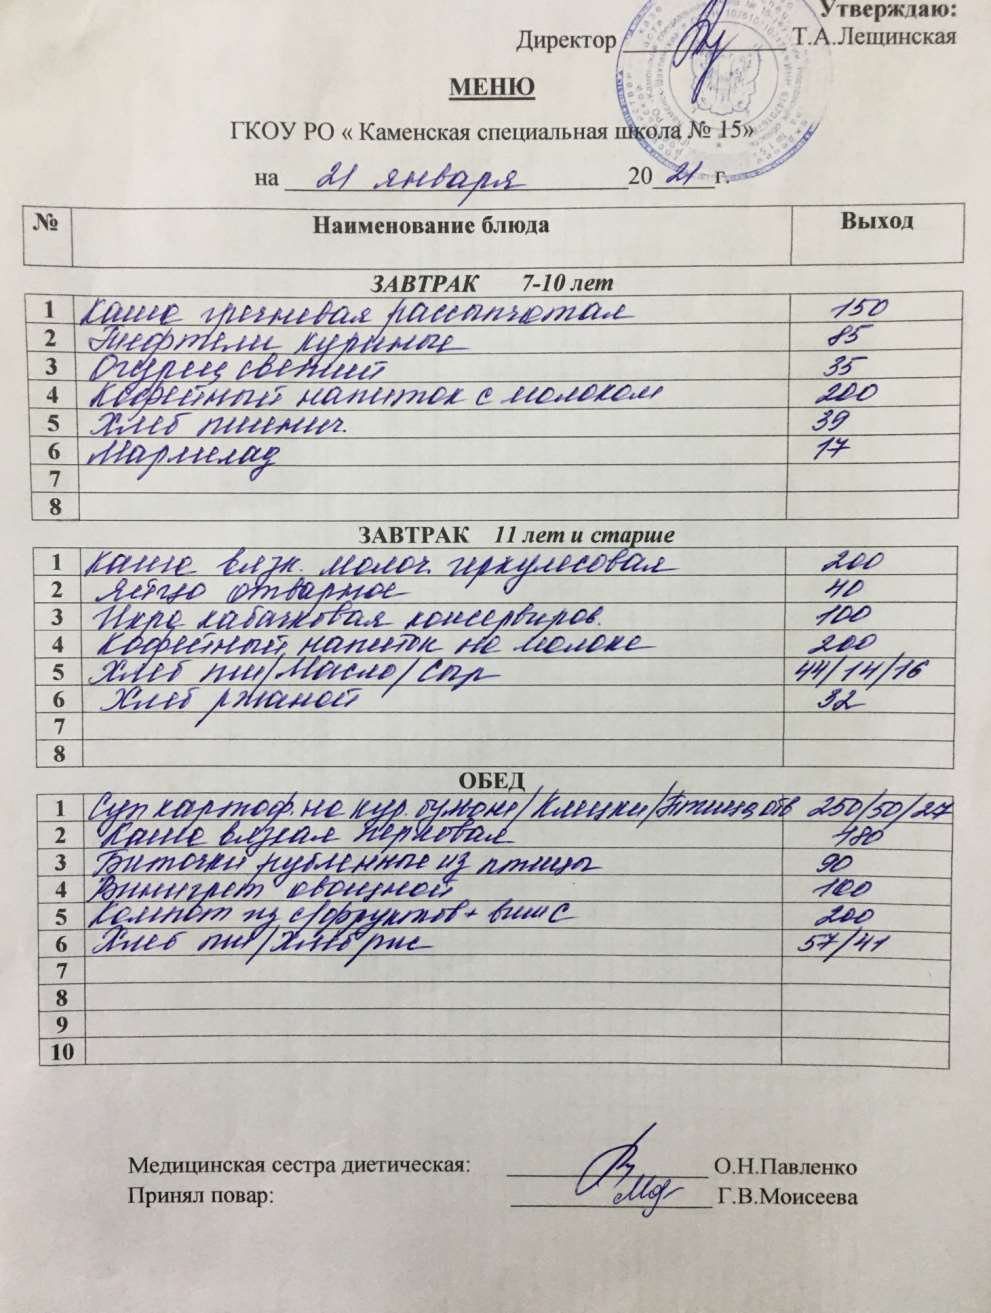 Утверждаю:
Директор Т.А.Лещинская
МЕНЮ
ГКОУ РО « Каменская специальная школа № 15»
на 21 января 2021г.
№ Наименование блюда Выход
ЗАВТРАК 7-10 лет
1 Каша гречневая рассыпчатая 150
2 Тефтели куриные 85
3 Огурец свежий 35
4 Кофейный напиток с молоком 200
5 Хлеб пшенич. 39
6 Мармелад 17
7
8
ЗАВТРАК 11 лет и старше
1 Каша вязк. молоч. геркулесовая 200
2 Яйцо отварное 40
3 Икра кабачковая консервиров. 100
4 Кофейный напиток на молоке 200
5 Хлеб пш/Масло/Сыр 44/14/16
6 Хлеб ржаной 32
7
8
ОБЕД
1 Суп картоф. на кур. бульоне/Клецки/Птица отв 250/50/27
2 Каша вязкая перловая 180
3 Биточки рубленные из птицы 90
4 Винигрет овощной 100
5 Компот из с/фруктов + вит С 200
6 Хлеб пш/Хлеб рж 57/41
7
8
9
10
Медицинская сестра диетическая: О.Н.Павленко
Принял повар: Г.В.Моисеева